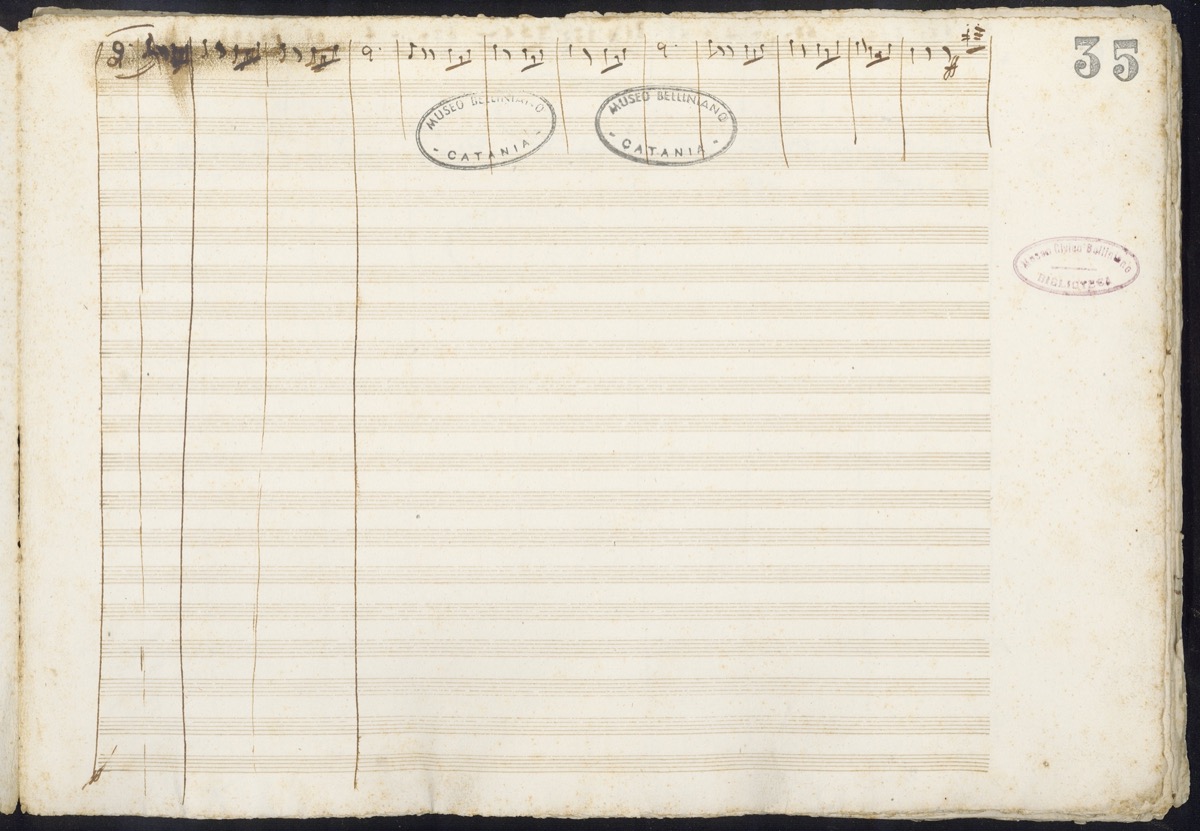 35
MUSEO BELLINIANO
- CATANIA -
MUSEO BELLINIANO
- CATANIA -
Museo Civico Belliniano
BIBLIOTECA
ff